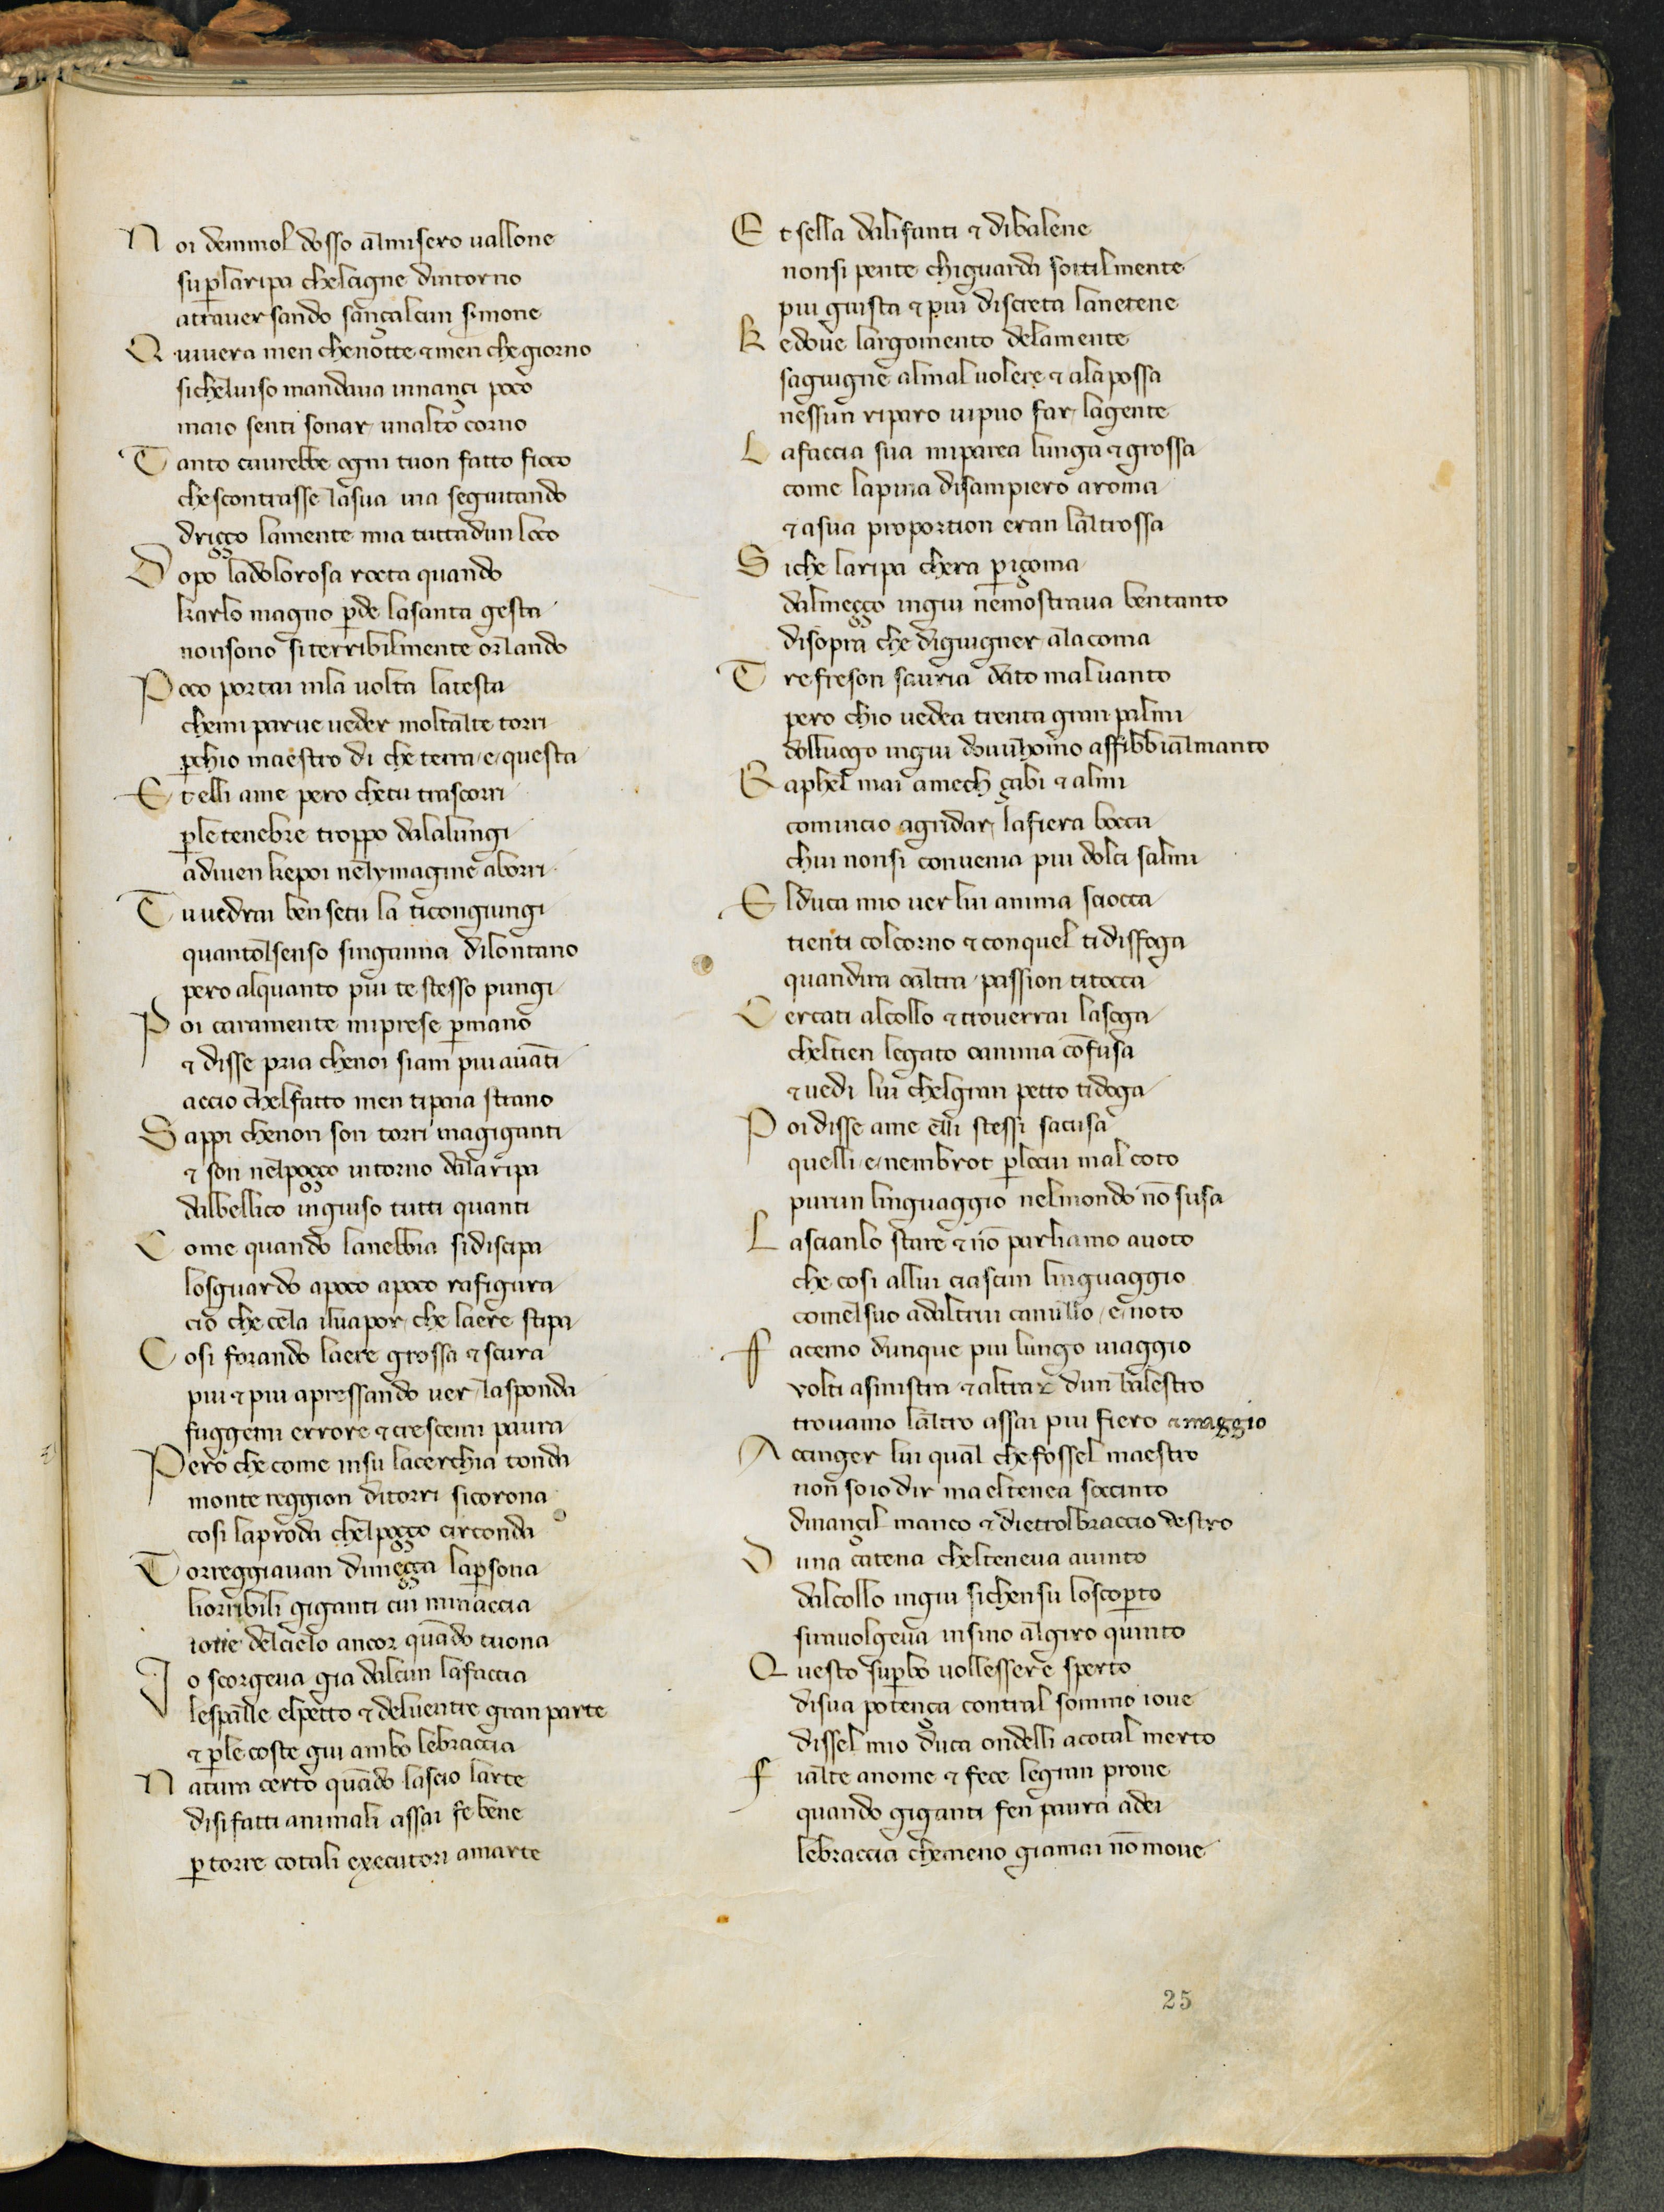 Noi demmol dosso almisero uallone
sup̱laripa chelcigne dintorno
atrauersando sança̧lcun simone
Quiuera men chenotte ⁊ men chegiorno
sichelviso mandaua innançi poco
maio senti sonar unalto corno
Tanto caurebbe ogni tuon fatto fioco
chescontrasse lasua uia seguitando
driçço lamente mia tuttadun loco
Dopo ladolorosa rocta quando
karlo magno p̱de lasanta gesta
nonsono siterribilmente orlando
Poco portai inla uolta latesta
chemi parue ueder moltalte torri
p̱chio maestro di che terra e questa
Et elli ame pero chetu trascorri
p̱letenebre troppo dalalungi
adiuen kepoi nelymagine aborri
Tu uedrai ben setu la ticongiungi
quantolsenso singanna dilontano
pero alquanto piu te stesso pungi
Poi caramente miprese p̱mano
⁊ disse pria chenoi siam piu auāti
accio chelfatto men tipaia strano
Sappi chenon son torri magiganti
⁊ son nelpoçço intorno dalaripa
dalbellico ingiuso tutti quanti
Come quando lanebbia sidiscipa
losguardo apoco apoco rafigura
cio che cela iluapor che laere stipa
Cosi forando laere grossa ⁊ scura
piu ⁊ piu apressando uer lasponda
fuggemi errore ⁊ crescemi paura
Pero che come insu lacerchia tonda
monte reggion ditorri sicorona
cosi laproda chelpoçço circonda
Torreggiauan dimeçça lap̱sona
liorribili giganti cui minaccia
ioue delcielo ancor quādo tuona
Io scorgeua gia dalcun lafaccia
lespalle elpetto ⁊ deluentre gran parte
⁊ p̱le coste giu ambo lebraccia
Natura certo quādo lascio larte
disifatti animali assai fe bene
p̱ torre cotali executori amarte
Et sella dalifanti ⁊ dibalene
nonsi pente chiguarda sottilmente
piu giusta ⁊ piu discreta lanetene
Ke doue largomento delamente
sagiugne almal uolere ⁊ alapossa
nessun riparo uipuo far lagente
La faccia sua miparea lunga ⁊ grossa
come lapina disampiero aroma
⁊ asua proportion eran laltrossa
Siche laripa chera p̱igoma
dalmeçço ingiu nemostraua bentanto
disopra che digiugner alacoma
Tre freson sauria dato maluanto
pero chio uedea trenta gran palmi
dalluogo ingiu douulhomo affibbialmanto
Raphel mai amech çabi ⁊ almi
comincio agridar lafiera bocca
chui nonsi conuenia piu dolci salmi
El duca mio uer lui anima sciocca
tienti colcorno ⁊ conquel tidisfoga
quandira oaltra passion titocca
Cercati alcollo ⁊ trouerrai lasoga
cheltien legato oanima cōfusa
⁊ uedi lui chelgran petto tidoga
Poi disse ame elli stessi sacusa
quelli e nembrot p̱locui mal coto
purun linguaggio nelmondo nō susa
Lascianlo stare ⁊ nō parliamo auoto
che cosi allui ciascun linguaggio
comelsuo adaltrui canullo e noto
Facemo dunque piu lungo uiaggio
volti asinistra ⁊ altrar dun balestro
trouamo laltro assai piu fiero ⁊ maggio
A cinger lui qual che fossel maestro
non soio dir ma eltenea socinto
dinançil manco ⁊ dietrolbraccio destro
Duna catena chelteneua auinto
dalcollo ingiu sichensu loscop̱to
sirauolgeua insino algiro quinto
Questo sup̱bo uollessere sperto
disua potença contral sommo ioue
dissel mio duca ondelli acotal merto
Fialte anome ⁊ fece legran proue
quando giganti fen paura adei
lebraccia chemeno giamai nō moue
25